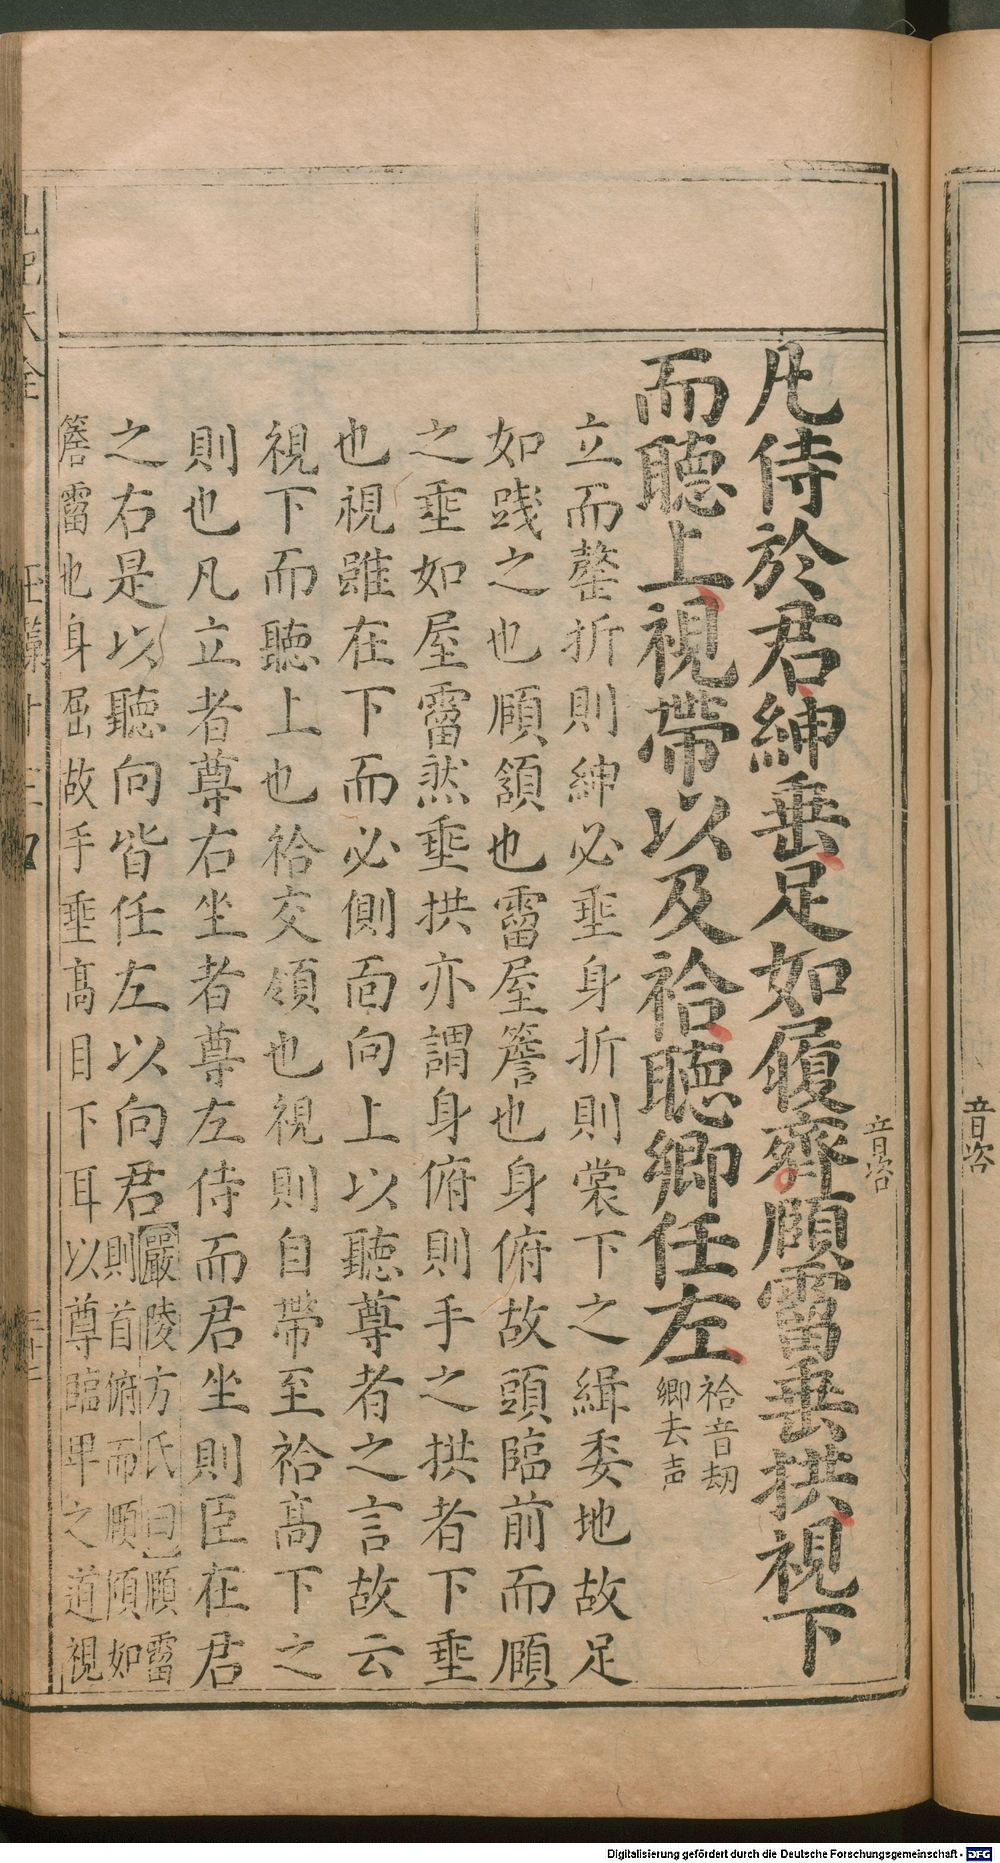 凡侍於君紳垂足如履齊頤霤垂拱視下
音咨
而聽上視帶以及袷聽鄉任左
袷音刼
鄉去声
立而磬折則紳必垂身折則裳下之緝委地故足
如踐之也頤頷也霤屋簷也身俯故頭臨前而頤
之垂如屋霤然垂拱亦謂身俯則手之拱者下垂
也視雖在下而必側面向上以聽尊者之言故云
視下而聽上也袷交領也視則自帶至袷高下之
則也凡立者尊右坐者尊左侍而君坐則臣在君
之右是以聽向皆任左以向君
嚴陵方氏曰頤霤
則首俯而頤傾如
簷霤也身屈故手垂高目下耳以尊臨卑之道視
音咨
Digitalisierung gefördert durch die Deutsche Forschungsgemeinschaft - DFG